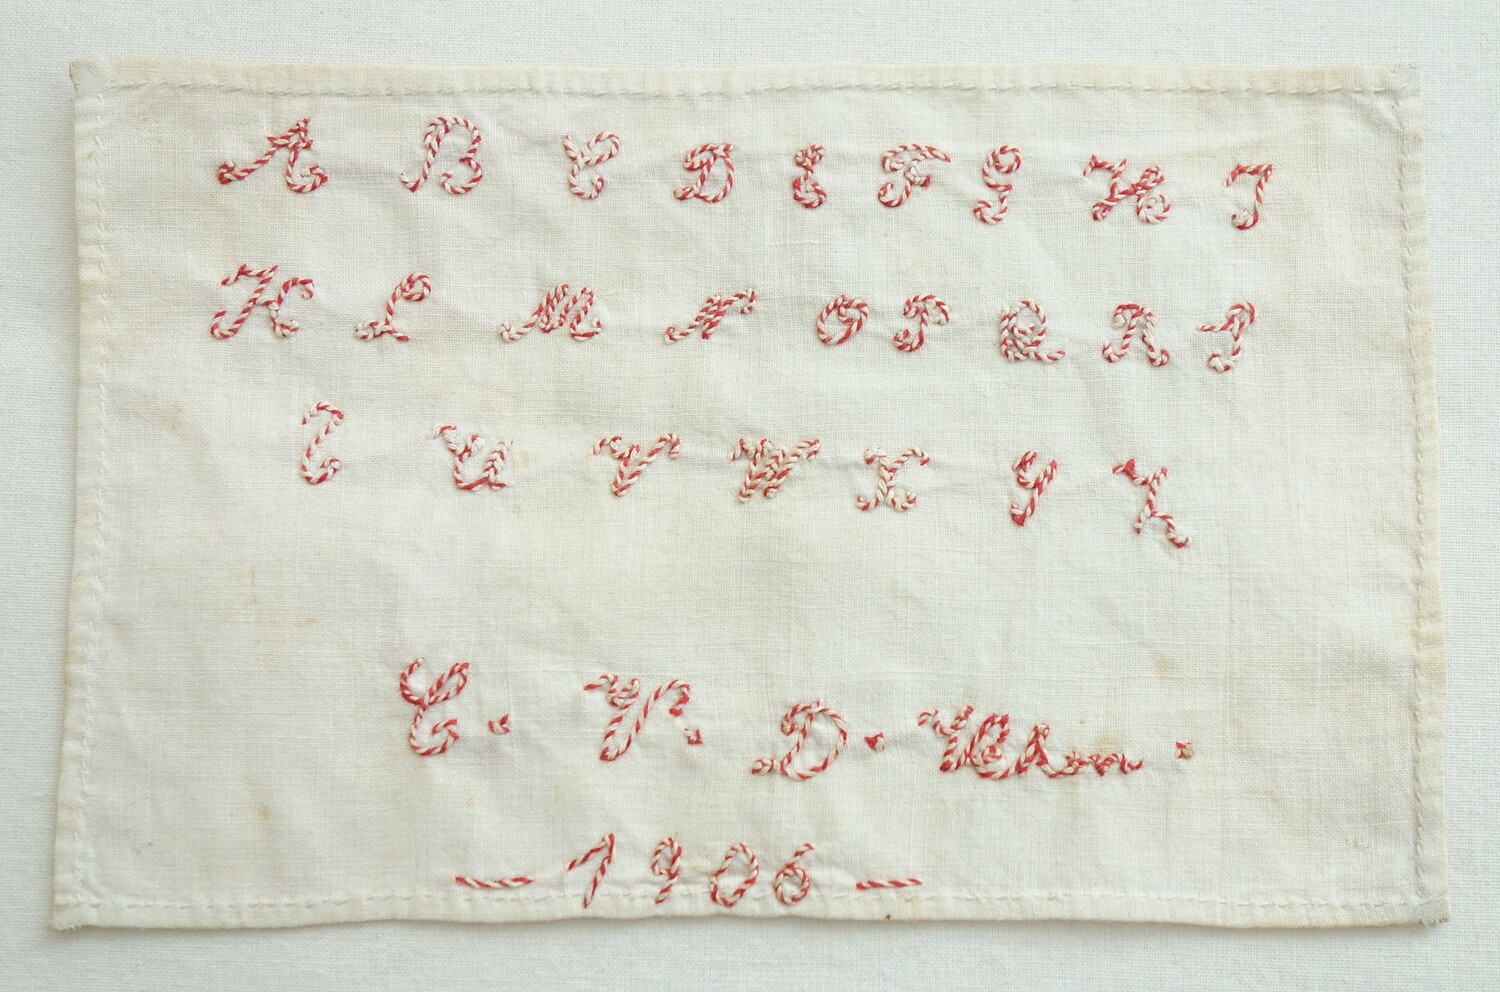 A B C D E F G H I
K L M N O P Q R S
T U V W X Y Z
C. V. D.
— 1906 —